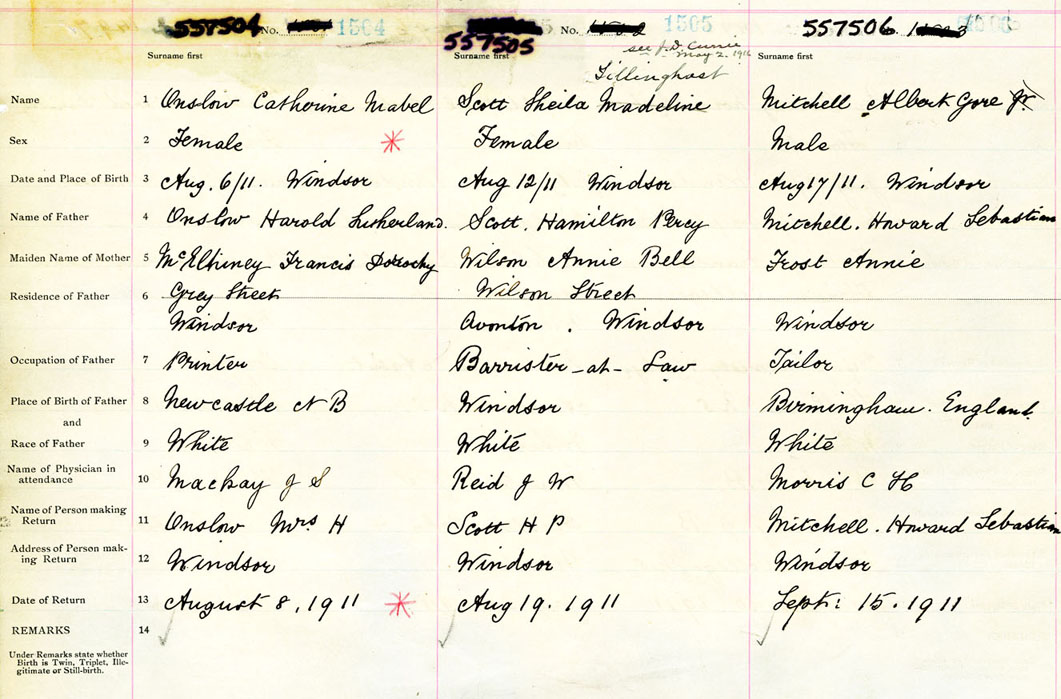 557504 No. 1504
557505 No. 1505
557506
see J. D. Currie
May 2. 1916
Tillinghast
Surname first Surname first Surname first
Name 1 Onslow Catherine Mabel Scott Sheila Madeline Mitchell Albert Gore Jr.
Sex 2 Female Female Male
Date and Place of Birth 3 Aug. 6/11. Windsor Aug 12/11 Windsor Aug 17/11. Windsor
Name of Father 4 Onslow Harold Sutherland. Scott. Hamilton Percy Mitchell. Howard Sebastian
Maiden Name of Mother 5 McElhiney Francis Dorothy Wilson Annie Bell Frost Annie
Residence of Father 6 Grey Street Wilson Street
Windsor Avonton. Windsor Windsor
Occupation of Father 7 Printer Barrister-at-Law Tailor
Place of Birth of Father 8 Newcastle N B Windsor Birmingham. England.
and
Race of Father 9 White White White
Name of Physician in
attendance 10 Mackay J S Reid J W Morris C H
Name of Person making
Return 11 Onslow Mrs H Scott H P Mitchell. Howard Sebastian
Address of Person mak-
ing Return 12 Windsor Windsor Windsor
Date of Return 13 August 8, 1911 Aug 19. 1911 Sept: 15. 1911
REMARKS 14
Under Remarks state whether
Birth is Twin, Triplet, Ille-
gitimate or Still-birth.